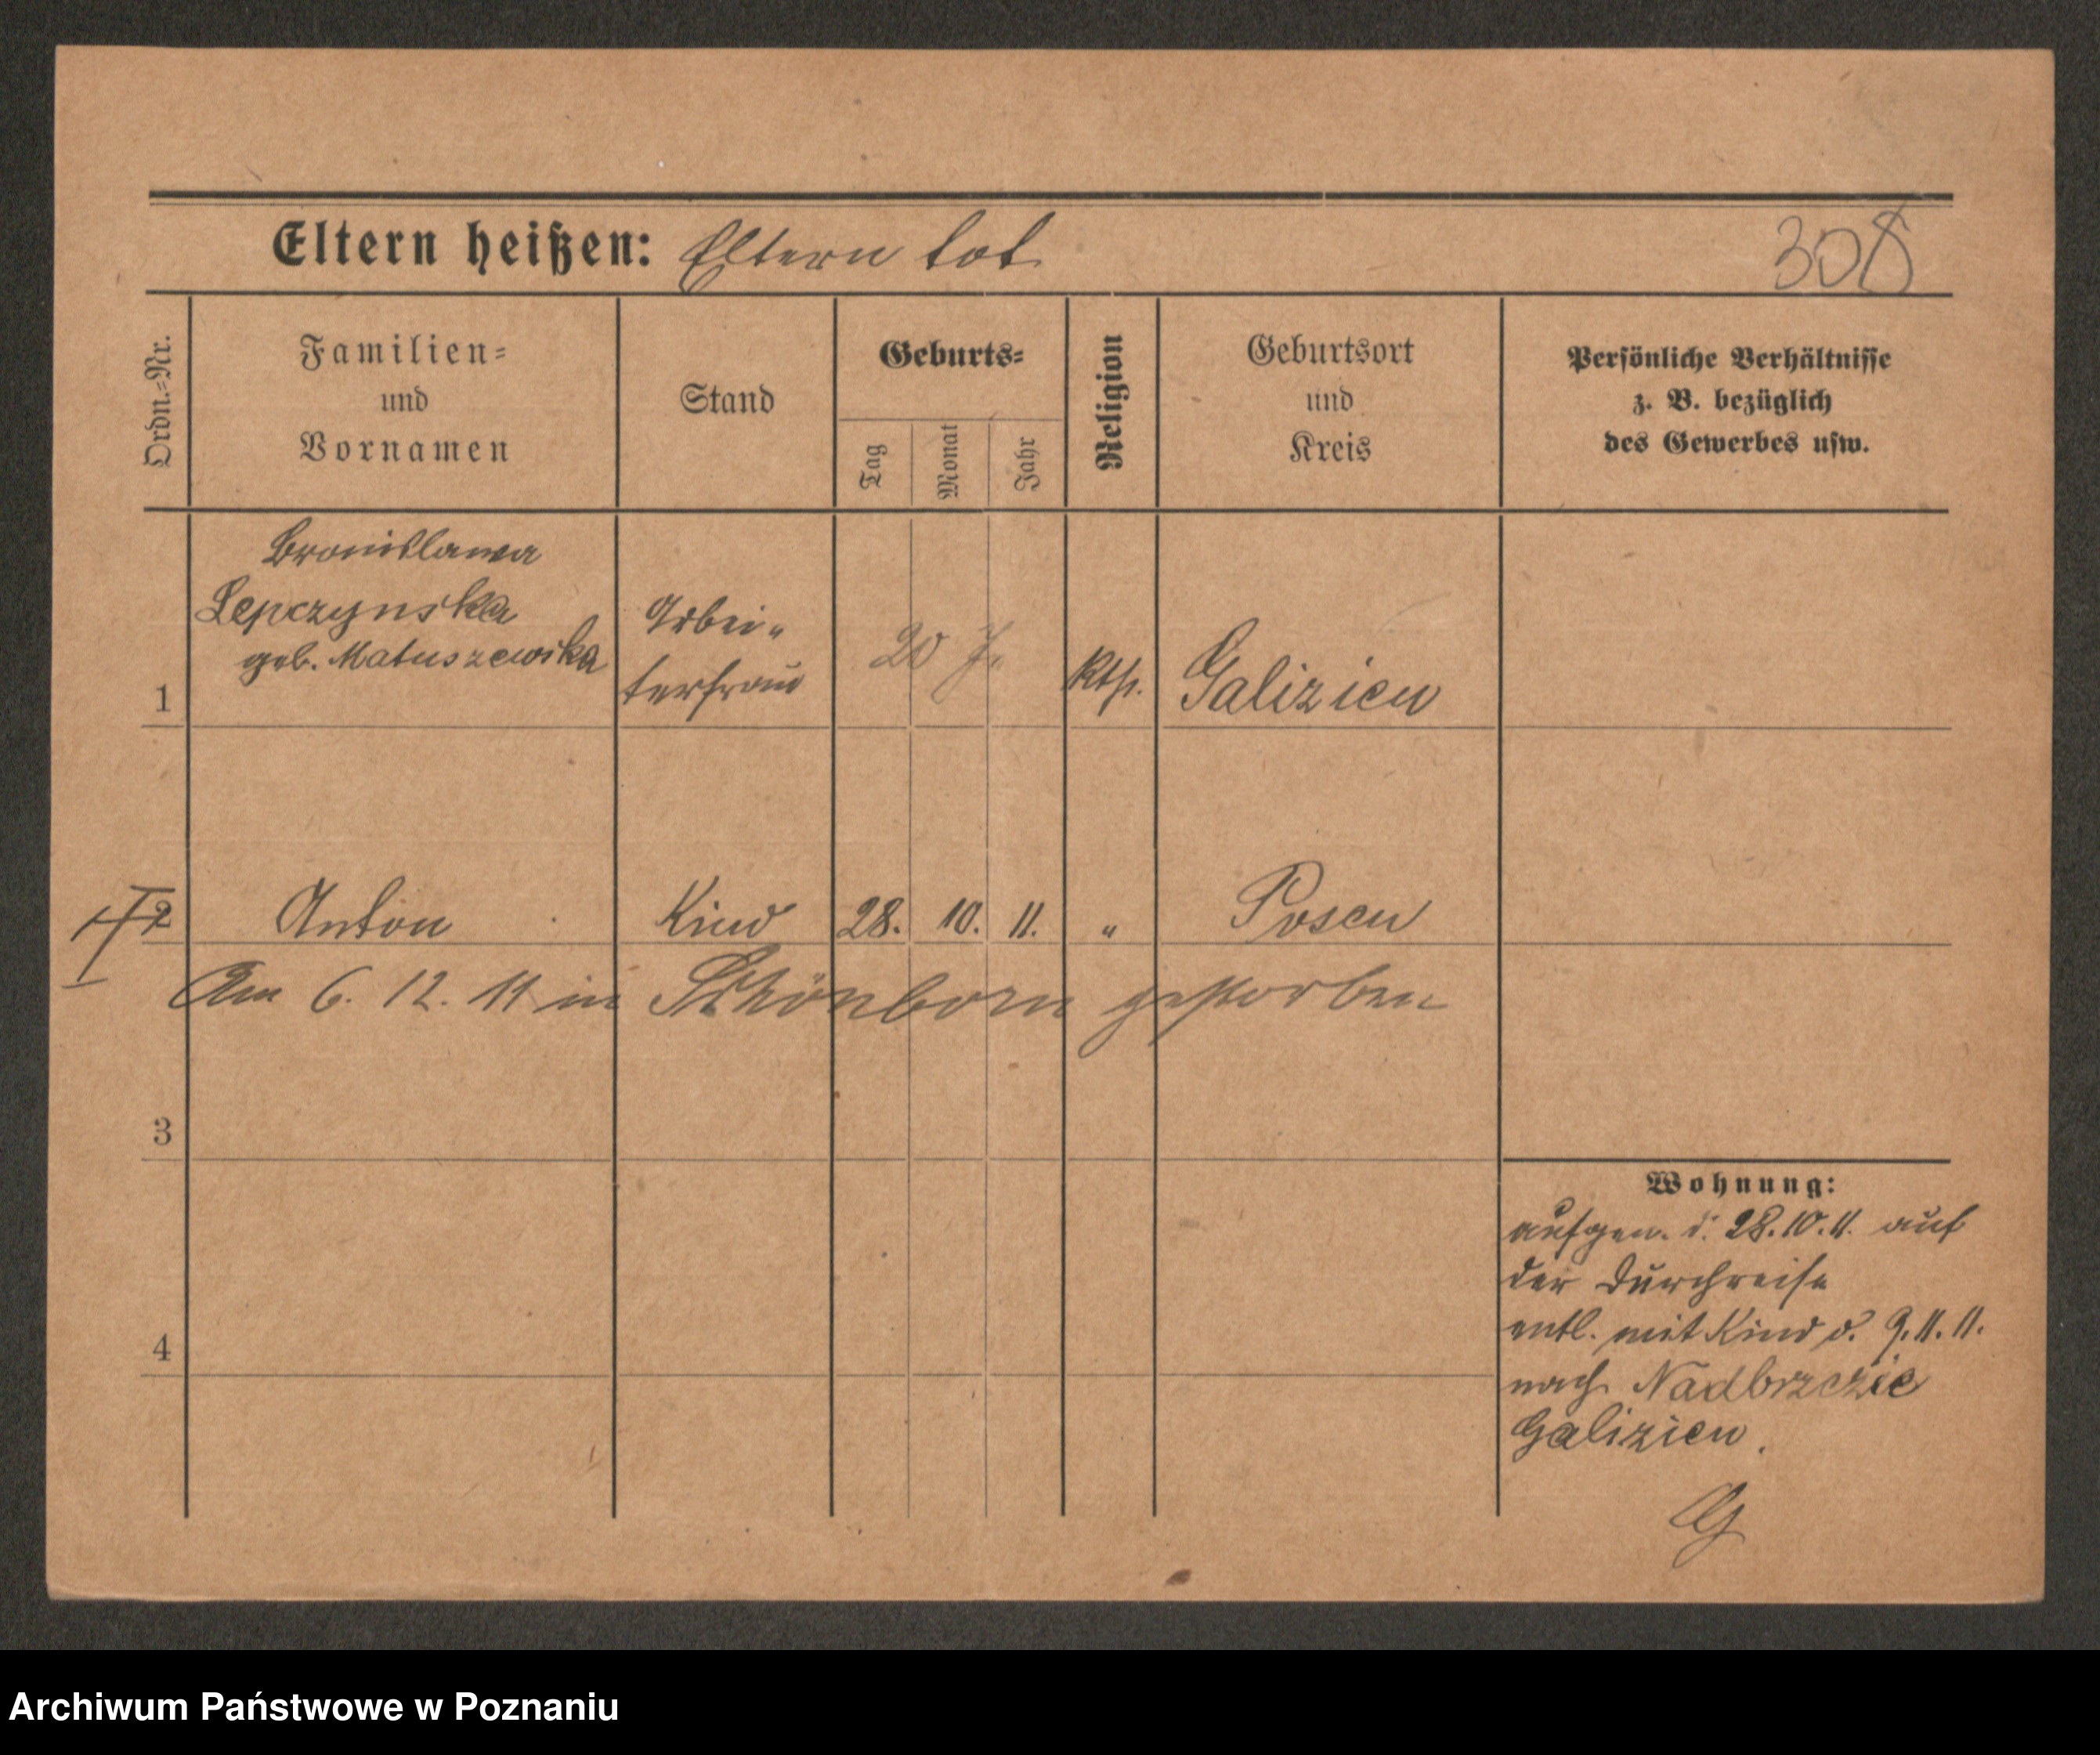 Eltern heißen: Eltern tot
308
Ordn.-Nr.
Familien-
und
Vornamen
Stand
Geburts-
Tag
Monat
Jahr
Religion
Geburtsort
und
Kreis
Persönliche Verhältnisse
z. B. bezüglich
des Gewerbes usw.
Bronislawa
Lepczynska
geb. Matuszewska
1
Arbei-
terfrau
20 J.
kth.
Galizien
2
Anton
Kind
28. 10. 11.
"
Posen
Am 6. 12. 11 in Schönborn gestorben
3
4
Wohnung:
aufgen. d. 28.10.11. auf
der Durchreise
entl. mit Kind d. 9.11.11.
nach Nadbrzezie
Galizien.
G
Archiwum Państwowe w Poznaniu